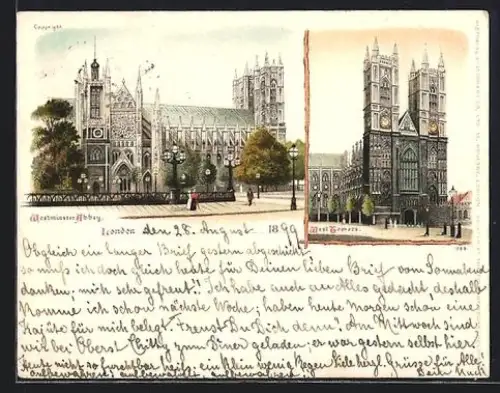 Copyright.
Westminster Abbey.
West Towers.
London den 28. August 1899
Obgleich ein langer Brief gestern abgeschickt
so muß ich doch gleich heute für Deinen lieben Brief vom Sonnabend
danken; mich sehr gefreut! Ich habe auch an Alles gedacht, deshalb
komme ich schon nächste Woche; haben heute Morgen schon eine
Kajüte für mich belegt. Freust Du Dich denn? Am Mittwoch sind
wir bei Oberst zum Diner geladen; er war gestern selbst hier.
Heute nicht so furchtbar heiß; ein klein wenig Regen. Viele herzl. Grüsse für Alle!
aufbewahren! aufbewahren! aufbewahren! Dein